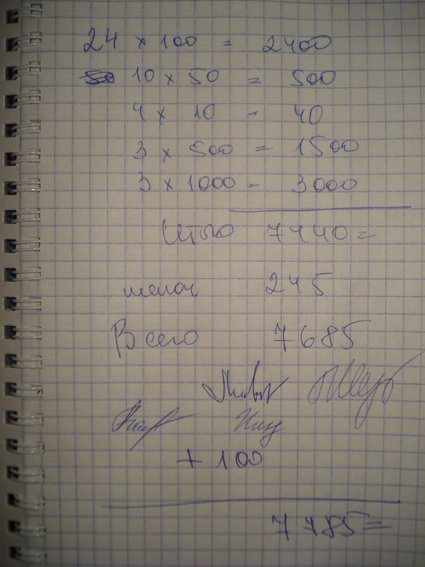 24 × 100 = 2400
10 × 50 = 500
4 × 10 - 40
3 × 500 = 1500
3 × 1000 - 3000
Итого 7440=
мелоч 245
Всего 7685
+ 100
7785=